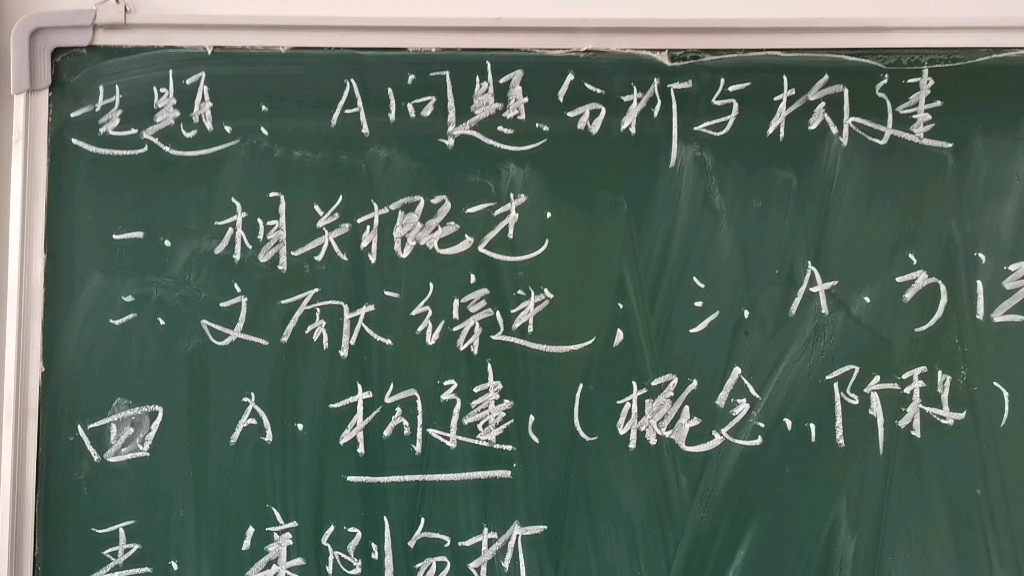 选题：A问题分析与构建
一.相关概述
二.文献综述；三.A.方法
四 A.构建.（概念..,阶段）
五.案例分析